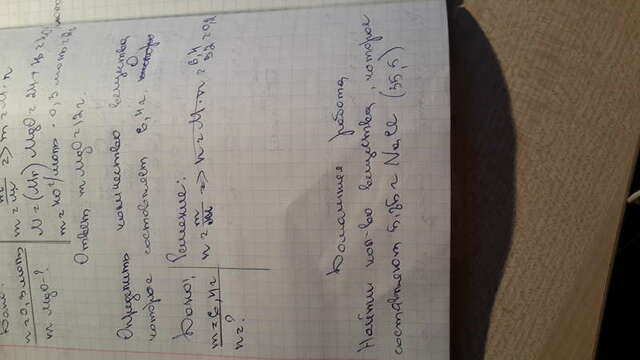 Дано:
n=0,3 моль
m MgO-?
n = m/M => m = M · n
M = (Mr) MgO = 24 + 16 = 40
m = 40 г/моль · 0,3 моль =
Ответ m MgO = 12 г.
Определить количество вещества,
которое составляет 6,4 г. O
Дано: Решение:
m = 6,4 г
n = ?
n = m/M => n = M · n = 6,4/32 = 0,2
Домашнее работа
Найти кол-во вещества, которое
составляют 5,35 г NaCl (35,5)